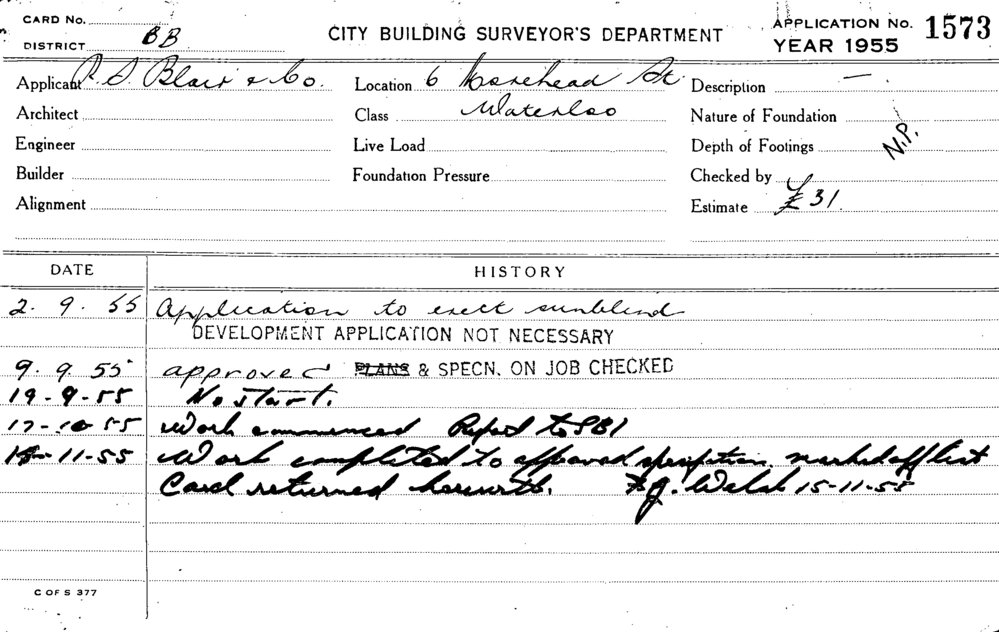 CARD No.
DISTRICT BB
CITY BUILDING SURVEYOR'S DEPARTMENT
APPLICATION No. 1573
YEAR 1955
Applicant P. S. Blair & Co. Location 6 Morehead St Description —
Architect Class Waterloo Nature of Foundation
Engineer Live Load Depth of Footings N.P.
Builder Foundation Pressure Checked by
Alignment Estimate £31.
DATE HISTORY
2. 9. 55 Application to erect sunblind
DEVELOPMENT APPLICATION NOT NECESSARY
9. 9. 55 approved PLANS & SPECN. ON JOB CHECKED
19-9-55 No start.
17-10-55 Work commenced Report to SBI
15-11-55 Work completed to approved specification marked off list
Card returned herewith. F.J. Welsh 15-11-55
C OF S 377